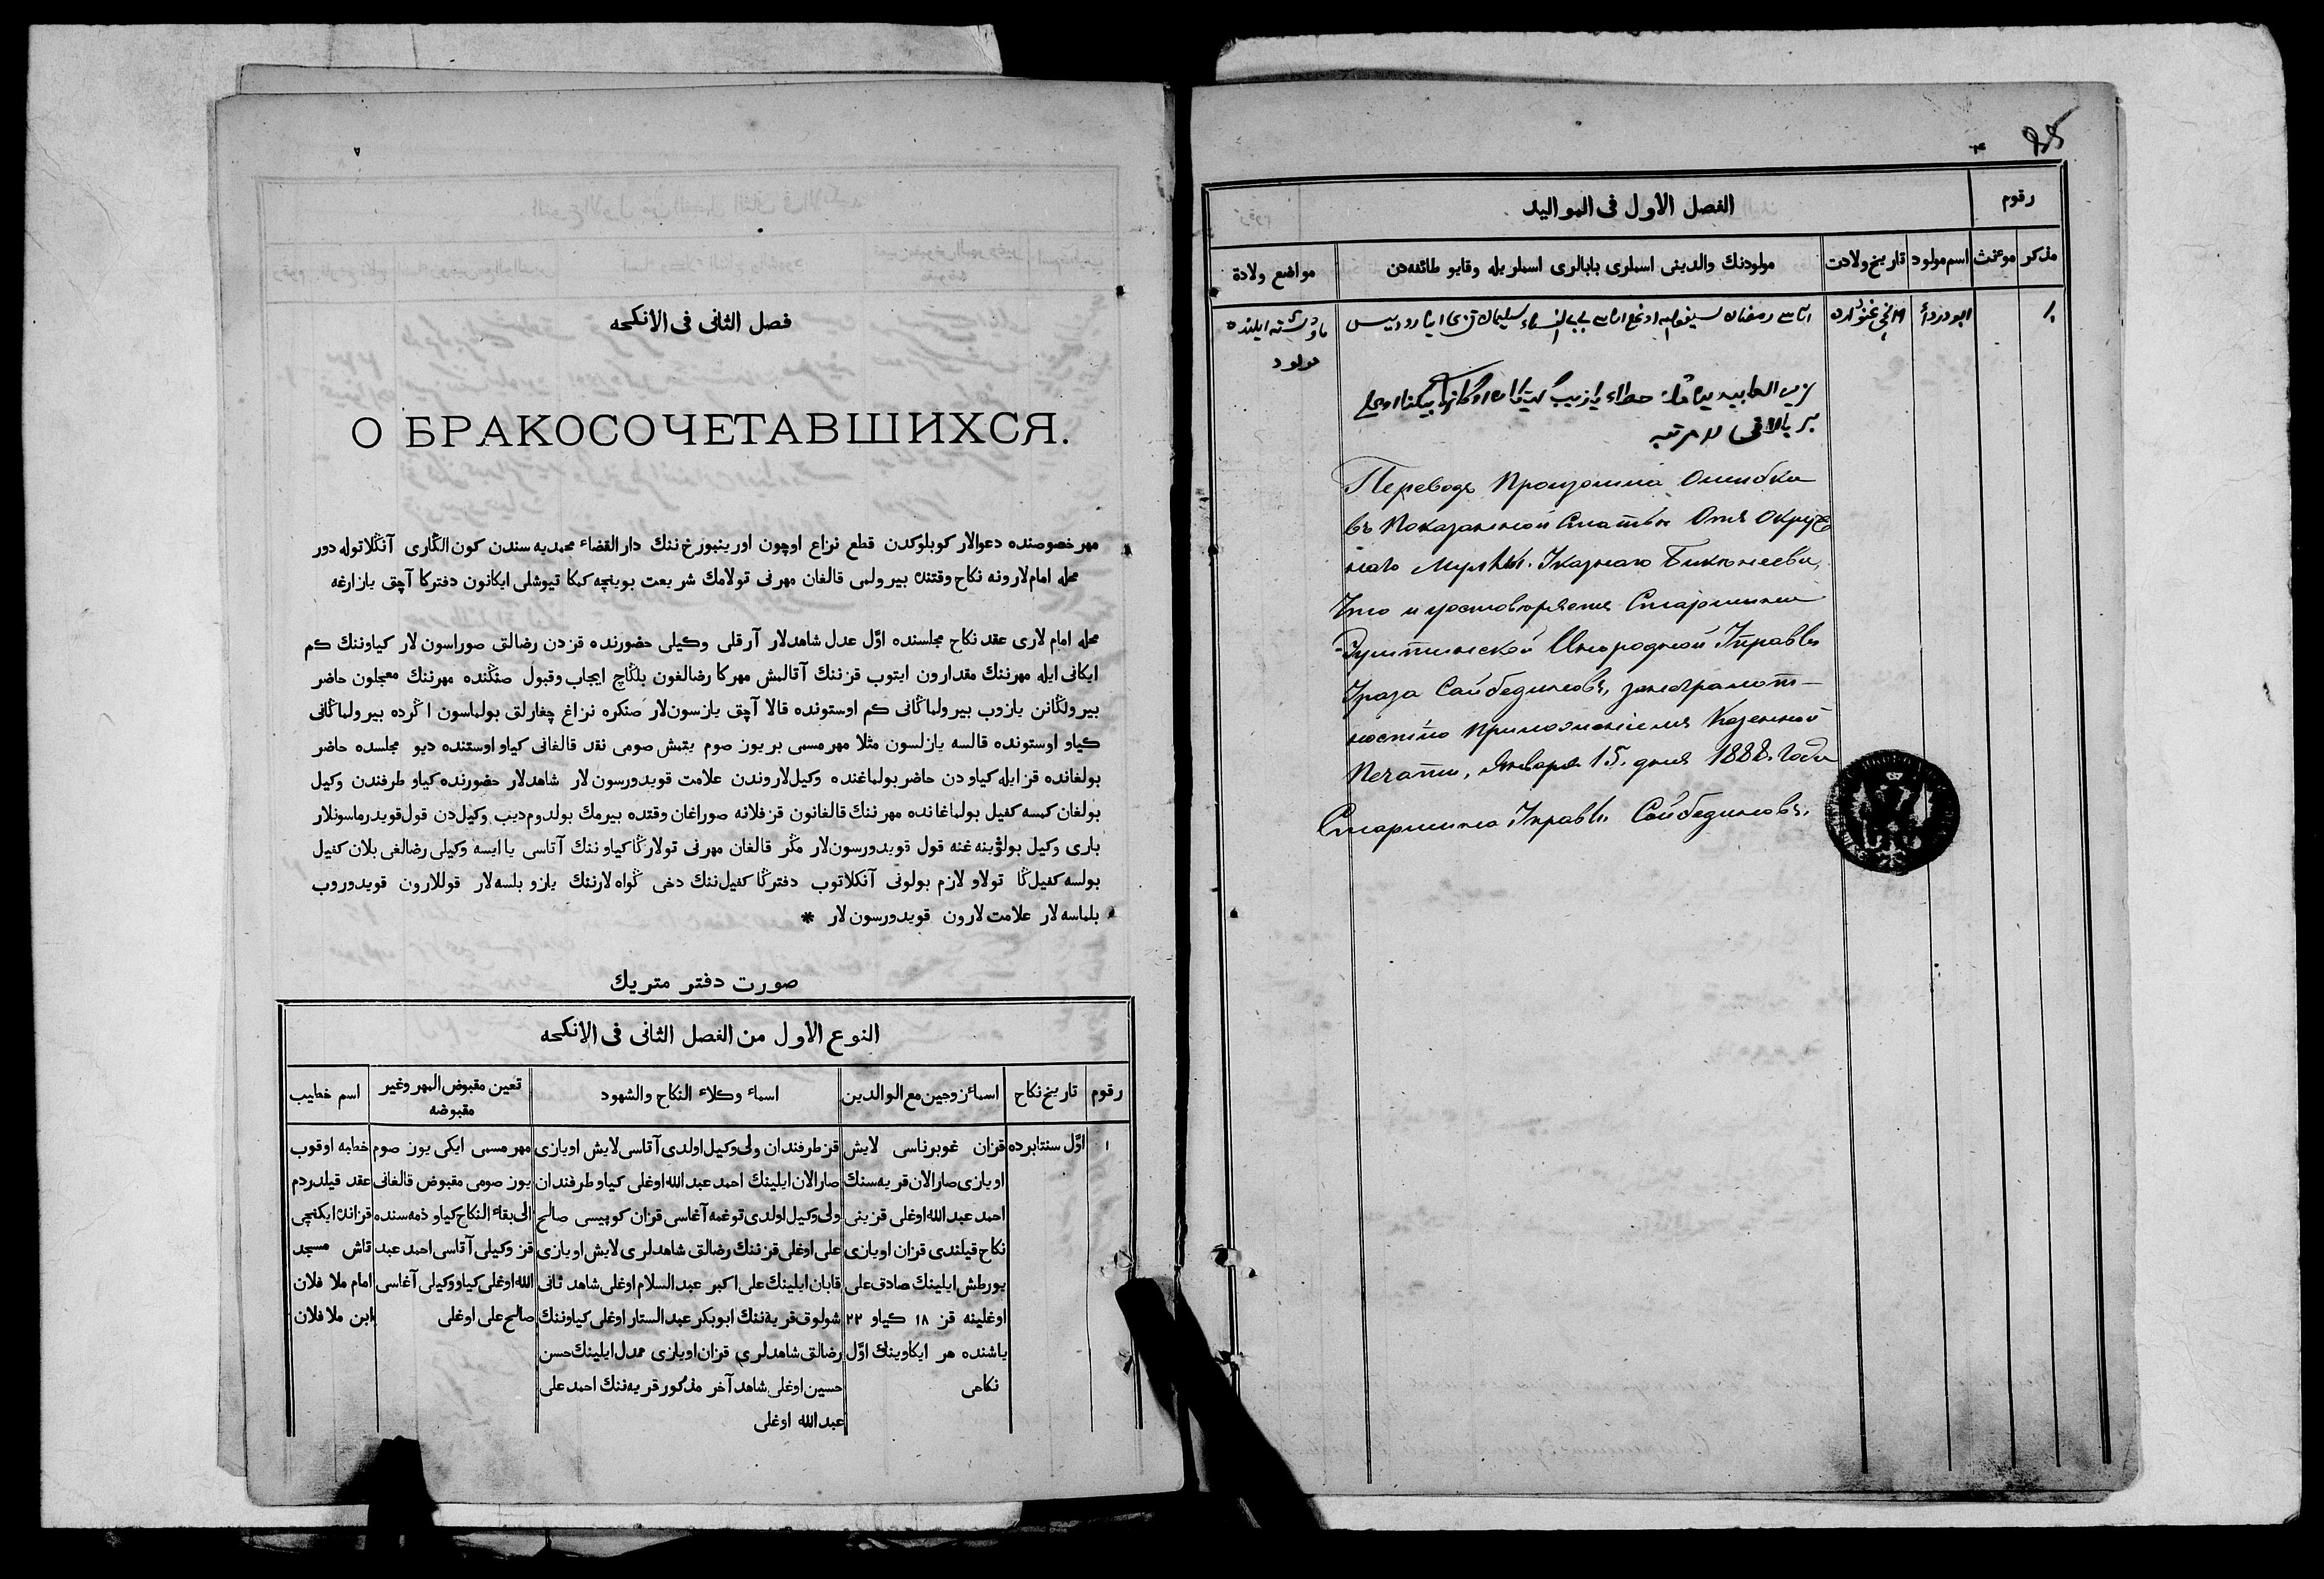 فصل الثانى فى الانكحه
О БРАКОСОЧЕТАВШИХСЯ.
مهر خصوصنده دعوالار كوبلوكدن قطع نزاع اوچون اورينبورخ ننك دار القضاء محمديه سندن كون الكارى آنكلاتوله دور
محله امام لارونه نكاح وقتنده بيرولمى قالغان مهرنى تولامك شريعت بوينچه كمكا تيوشلى ايكانون دفتركا آچق يازارغه
محله امام لارى عقد نكاح مجلسنده اوّل عدل شاهدلار آرقلى وكيلى حضورنده قزدن رضالق صوراسون لار كياوننك كم
ايكانى ايله مهرننك مقدارون ايتوب قزننك آتالمش مهركا رضالغون بلكاچ ايجاب وقبول صنكنده مهرننك معجلون حاضر
بيرولكانن يازوب بيرولماكانى كم اوستونده قالا آچق يازسون لار صنكره نزاغ چغارلق بولماسون اكرده بيرولماكانى
كياو اوستونده قالسه يازلسون مثلا مهر مسمى بر يوز صوم يتمش صومى نقد قالغانى كياو اوستنده ديو مجلسده حاضر
بولغانده قز ايله كياو دن حاضر بولماغنده وكيل لاروندن علامت قويدورسون لار شاهدلار حضورنده كياو طرفندن وكيل
بولغان كمسه كفيل بولماغانده مهرننك قالغانون قز فلانه صوراغان وقتده بيرمك بولدوم ديب وكيل دن قول قويدرماسونلار
بارى وكيل بولوينه غنه قول قويدورسون لار مكر قالغان مهرنى تولاركا كياو ننك آتاسى يا ايسه وكيلى رضالغى بلان كفيل
بولسه كفيل كا تولاو لازم بولونى آنكلاتوب دفتركا كفيل ننك دخى كواه لارننك يازو بلسه لار قوللارون قويدوروب
بلماسه لار علامت لارون قويدورسون لار *
صورت دفتر متريك
النوع الاول من الفصل الثانى فى الانكحه
رقوم تاريخ نكاح اسماء زوجين مع الوالدين اسماء وكلاء النكاح والشهود تعين مقبوض المهر وغير مقبوضه اسم خطيب
١ اوّل سنتابرده قزان غوبرناسى لايش قز طرفندان ولى وكيل اولدى آتاسى لايش اويازى مهر مسمى ايكى يوز صوم خطبه اوقوب
اويازى صارالان قريه سنك صارالان ايلينك احمد عبدالله اوغلى كياو طرفندان يوز صومى مقبوض قالغانى عقد قيلدردم
احمد عبدالله اوغلى قزينى ولى وكيل اولدى توغمه آغاسى قزان كوپيسى صالح الى بقاء النكاح كياو ذمه سنده قزانده ايكنچى
نكاح قيلندى قزان اويازى على اوغلى قزننك رضالق شاهدلرى لايش اويازى قز وكيلى آتاسى احمد عبد تاش مسجد
بورطش ايلينك صادق على قابان ايلينك على اكبر عبدالسلام اوغلى شاهد ثانى الله اوغلى كياو وكيلى آغاسى امام ملا فلان
اوغلينه قز ١٨ كياو ٢٢ شولوق قريه ننك ابوبكر عبدالستار اوغلى كياوننك صالح على اوغلى ابن ملا فلان
ياشنده هر ايكاوينك اوّل رضالق شاهدلرى قزان اويازى ممدل ايلينك حسن
نكاحى حسين اوغلى شاهد آخر مذكور قريه ننك احمد على
عبدالله اوغلى
رقوم الفصل الاول فى المواليد
مذكر موءنث اسم مولود تاريخ ولادت مولودنك والدينى اسملرى بابالرى اسملريله وقايو طائفه دن مواضع ولادة
ابودردأ
مولود
Переводъ Произошла Ошибка
въ Показанной Статьи Отъ Окруж
наго Муллы. Указнаго Бикинеева,
Что и удостовѣряетъ Старшина
Инородной Управы
Ураза Сайбединовъ, за неграмот-
ностію приложеніемъ Казенной
Печати, Января 15. дня 1888. Года
Старшина Управы Сайбединовъ.